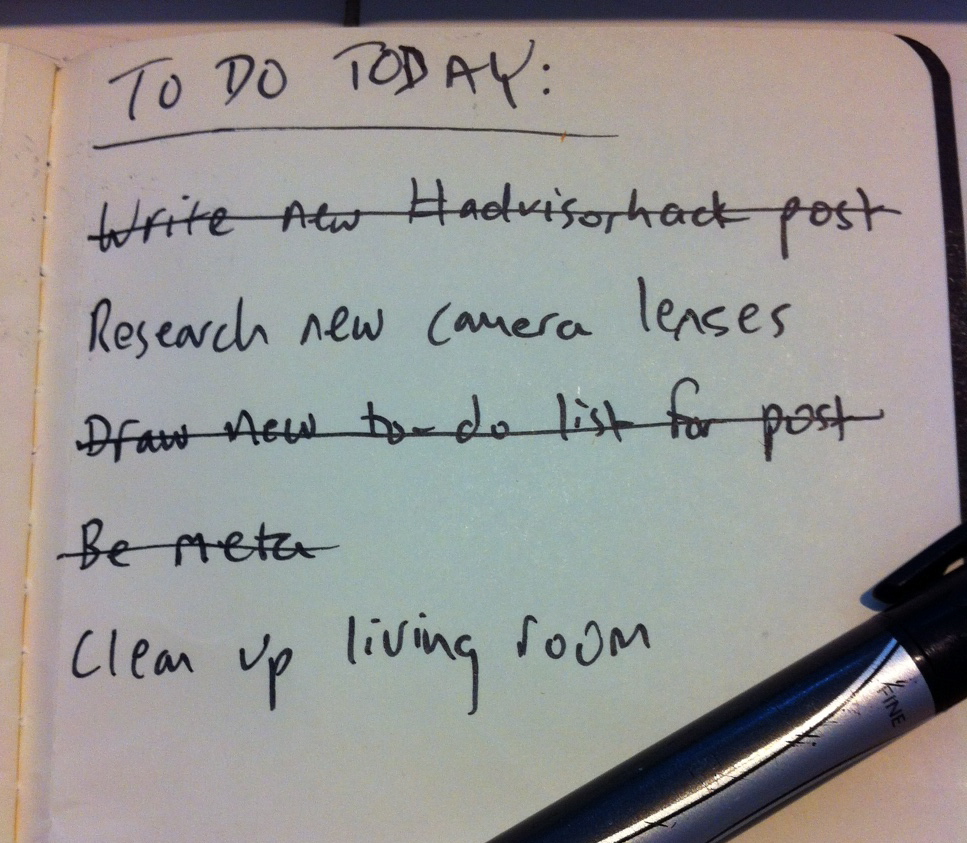 TO DO TODAY:
Write new Hadvisorhack post
Research new camera lenses
Draw new to-do list for post
Be meta
Clean up living room
FINE